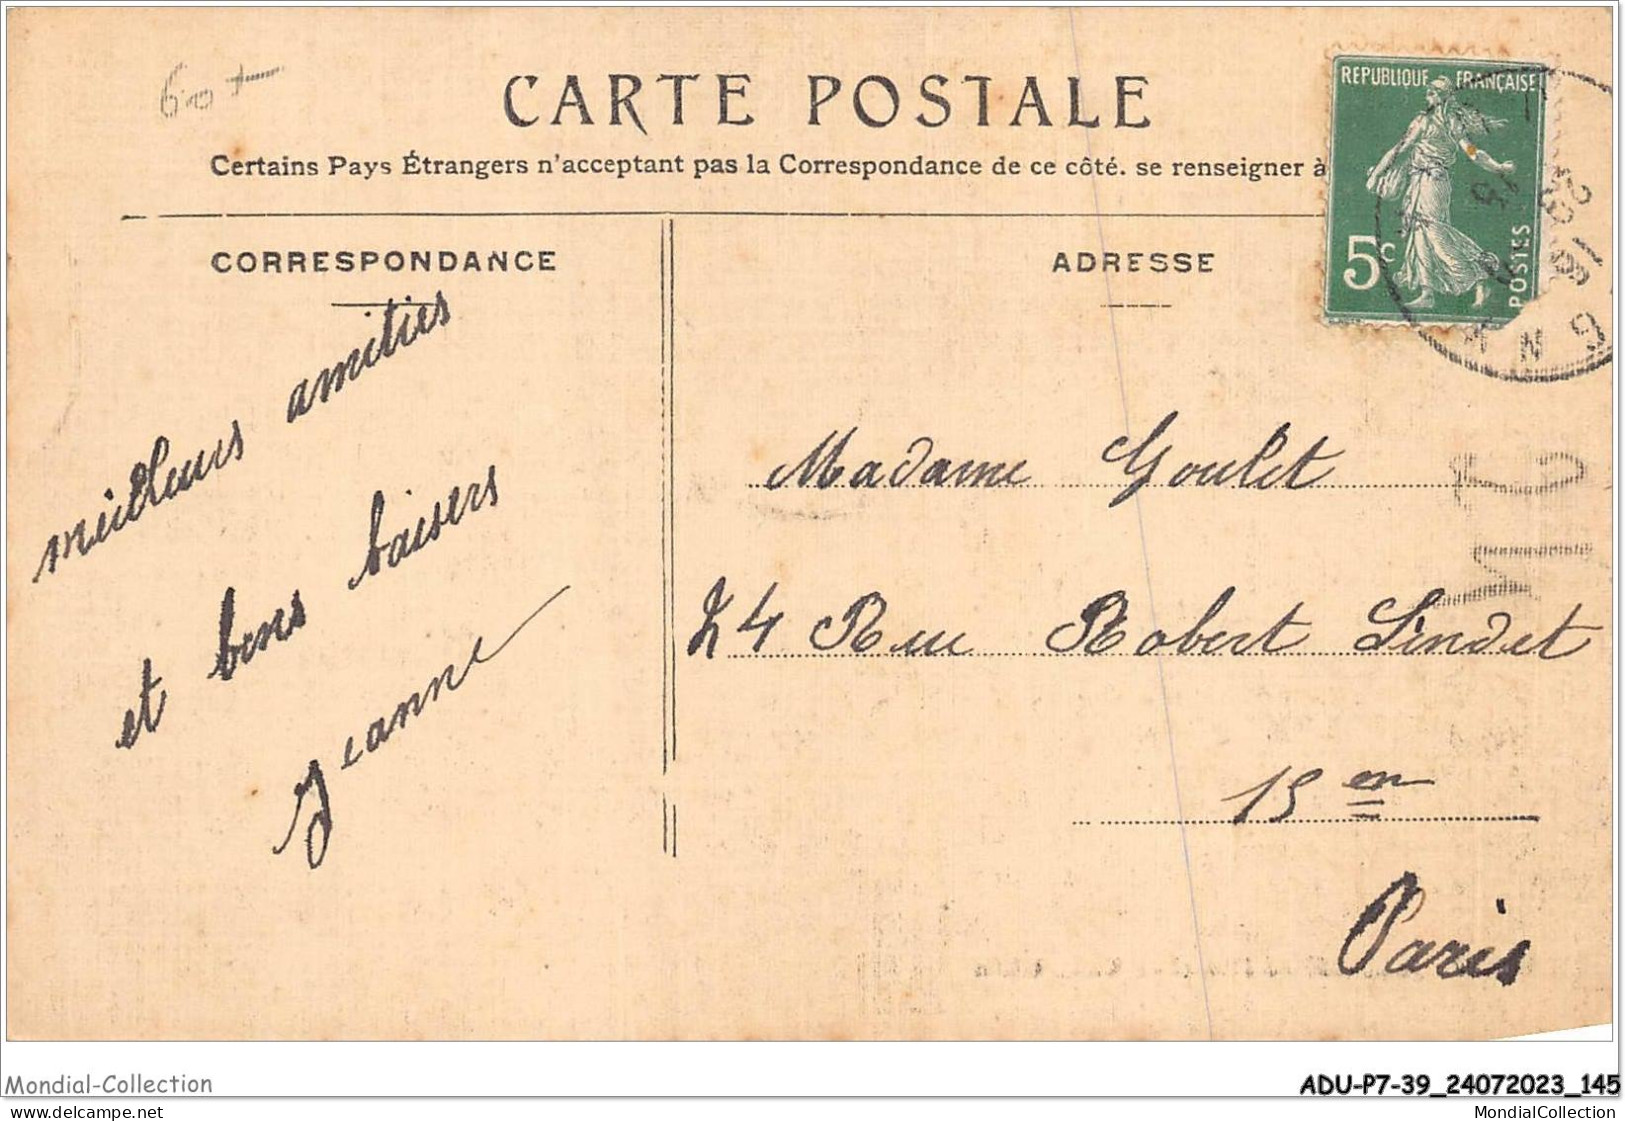 60+
CARTE POSTALE
Certains Pays Étrangers n'acceptant pas la Correspondance de ce côté. se renseigner à
REPUBLIQUE FRANÇAISE
5c
POSTES
CORRESPONDANCE
ADRESSE
meilleurs amities
et bons baisers
Jeanne
Madame Goulet
24 Rue Robert Lindet
15 em
Paris
Mondial-Collection
ADU-P7-39_24072023_145
www.delcampe.net
MondialCollection